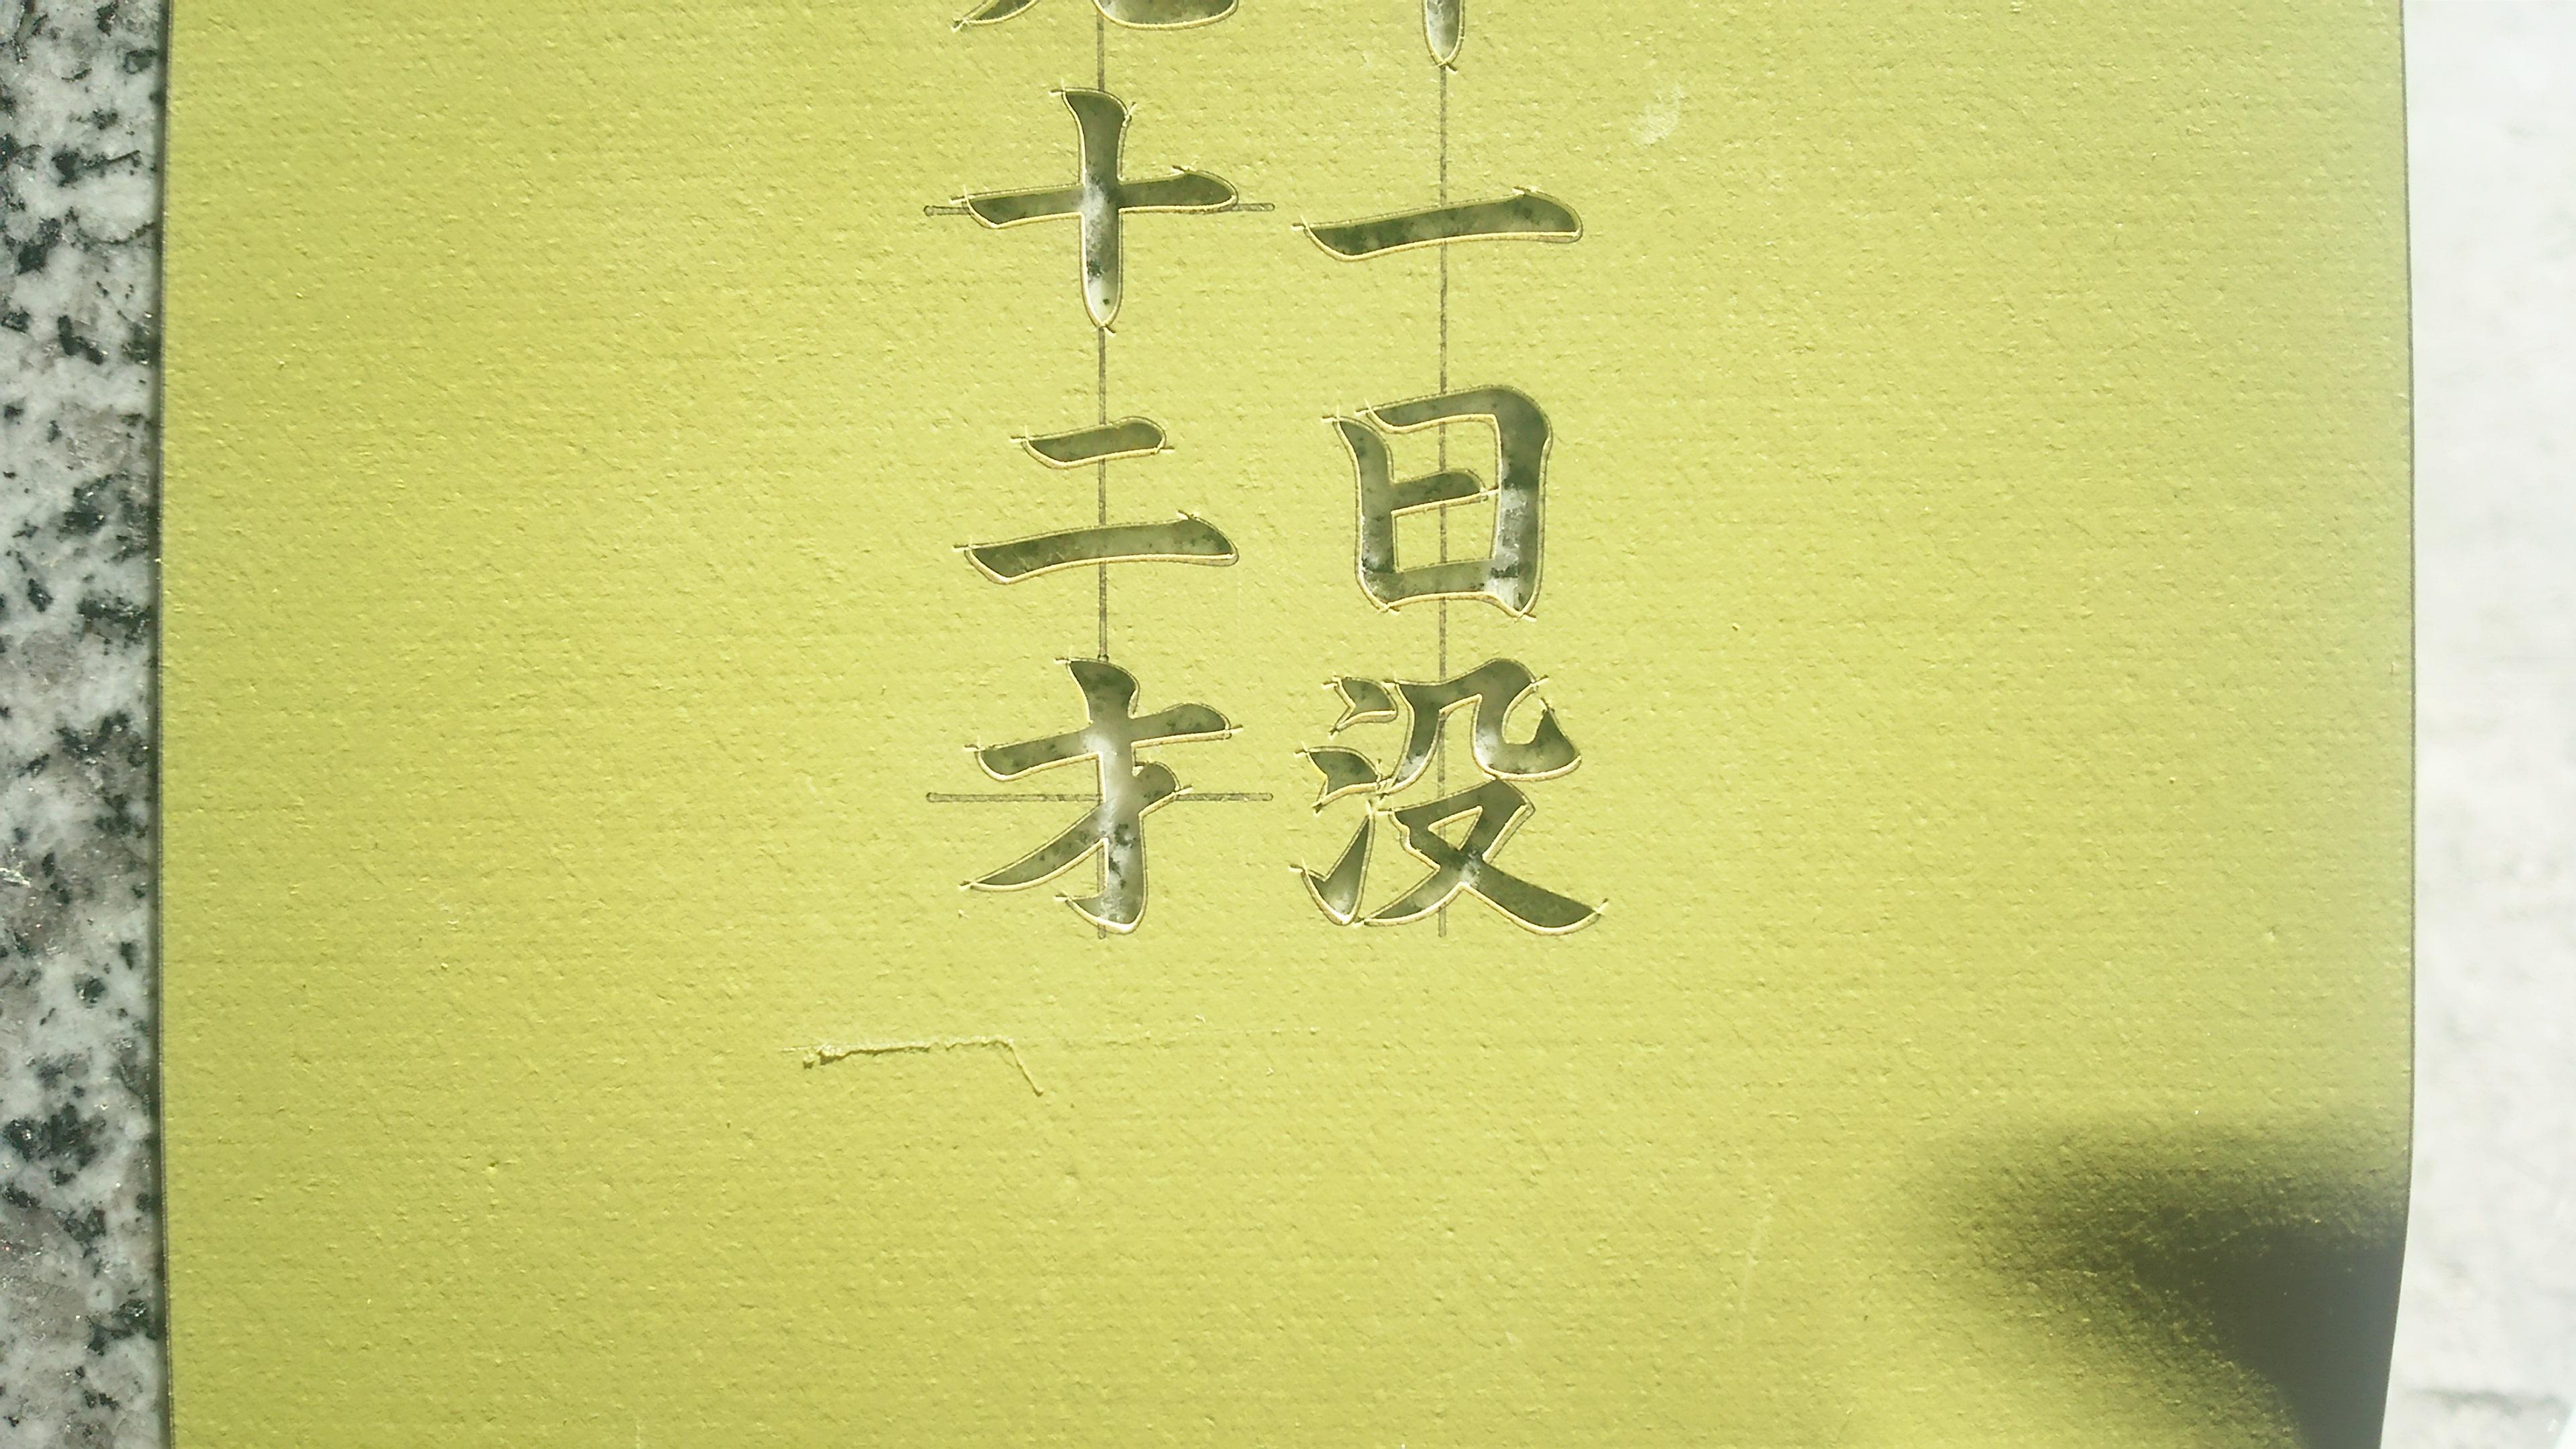 一日没
十二才